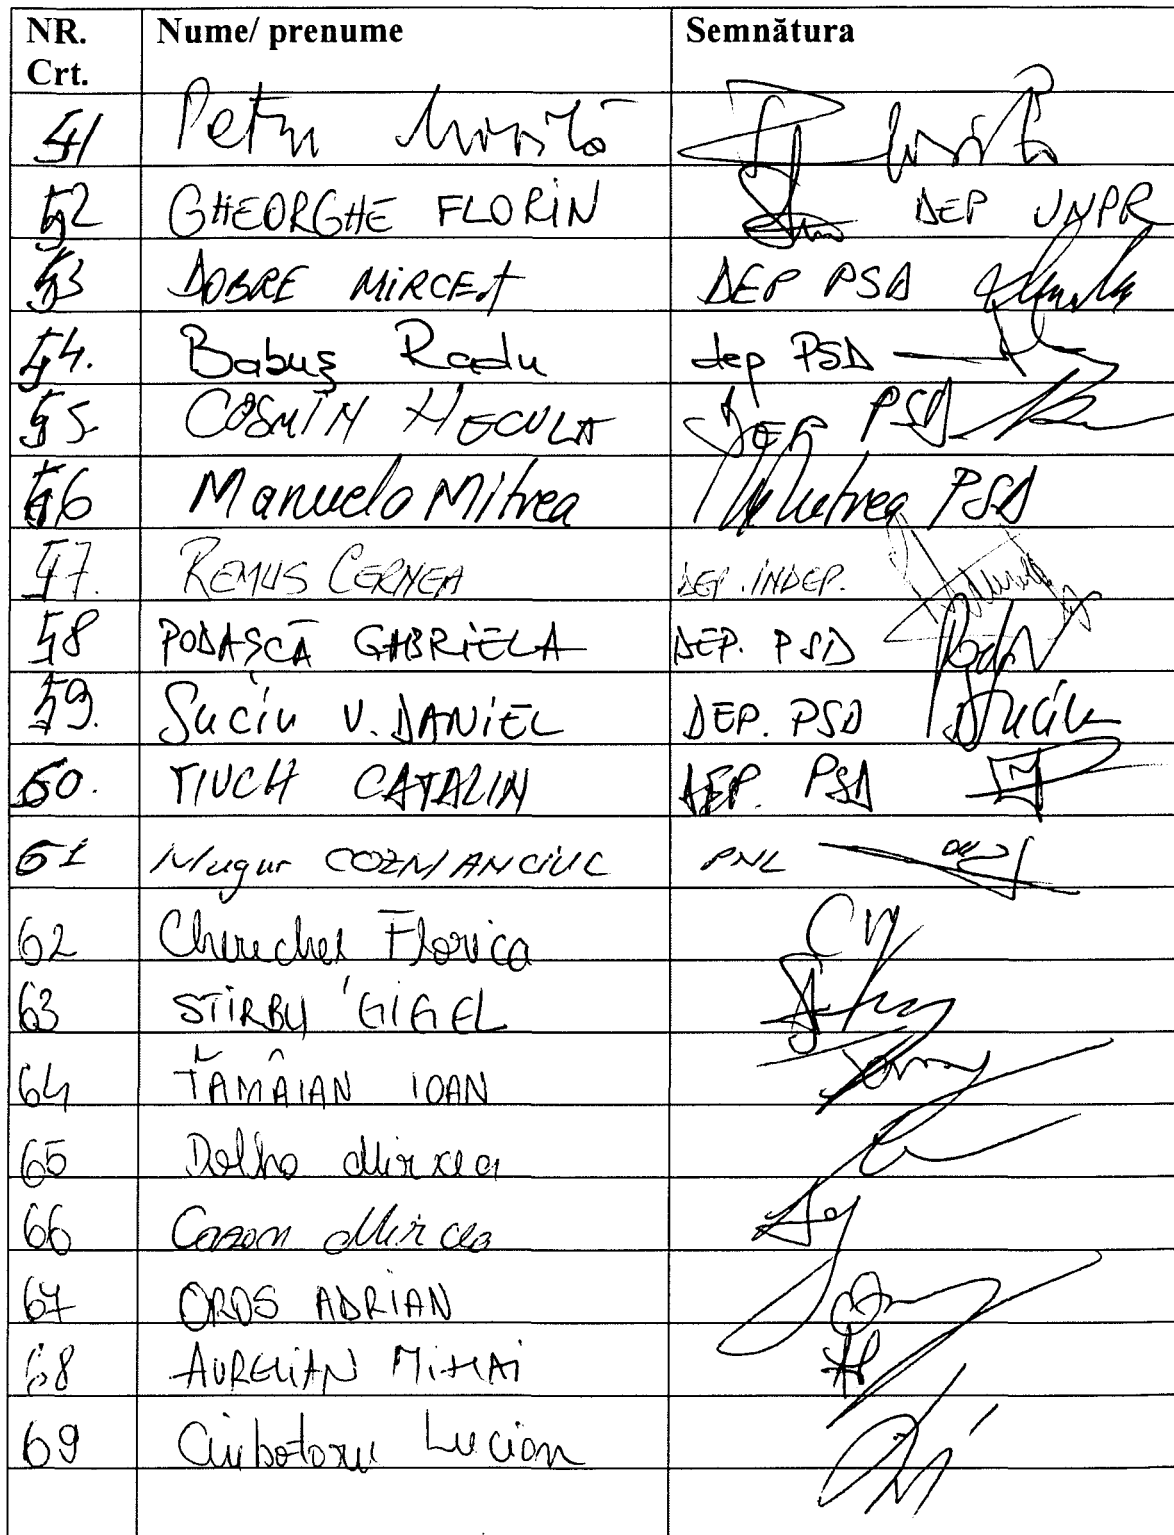 NR. Crt. Nume/ prenume Semnătura
51 Petru
52 GHEORGHE FLORIN DEP UNPR
53 DOBRE MIRCEA DEP PSD
54. Babuș Radu dep PSD
55. COSMIN NECULA DEP PSD
56 Manuela Mitrea Mitrea PSD
57. REMUS CERNEA DEP. INDEP.
58 PODAȘCĂ GABRIELA DEP. PSD
59. Suciu V. DANIEL DEP. PSD Suciu
60. TIUCH CATALIN DEP. PSD
61 Mugur COZMANCIUC PNL
62 Cherecheș Florica
63 STIRBU GIGEL
64 TĂMÂIAN IOAN
65 Dolha Mircea
66 Cazan Mircea
67 OROS ADRIAN
68 AURELIAN MIHAI
69 Ciubotaru Lucian